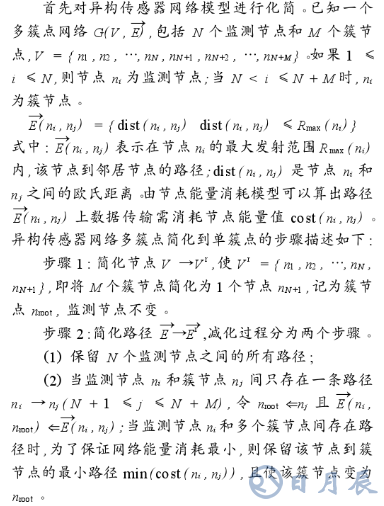 首先对异构传感器网络模型进行化简。已知一个
多簇点网络 G(V, E⃗),包括 N 个监测节点和 M 个簇节
点,V = { n1, n2, …, nN, nN+1, nN+2, …, nN+M}。如果 1 ≤
i ≤ N,则节点 ni 为监测节点;当 N < i ≤ N + M 时, ni
为簇节点。
E⃗(ni, nj) = {dist(ni, nj) dist(ni, nj) ≤ Rmax(ni)}
式中: E⃗(ni, nj) 表示在节点 ni 的最大发射范围 Rmax(ni)
内,该节点到邻居节点的路径; dist(ni, nj) 是节点 ni 和
nj 之间的欧氏距离。由节点能量消耗模型可以算出路径
E⃗(ni, nj) 上数据传输需消耗节点能量值 cost(ni, nj)。
异构传感器网络多簇点简化到单簇点的步骤描述如下:
步骤 1: 简化节点 V → V¹,使 V¹ = { n1, n2, …, nN,
nN+1},即将 M 个簇节点简化为 1 个节点 nN+1,记为簇节
点 nroot, 监测节点不变。
步骤 2:简化路径 E⃗→E⃗¹,减化过程分为两个步骤。
(1) 保留 N 个监测节点之间的所有路径;
(2) 当监测节点 ni 和簇节点 nj 间只存在一条路径
ni → nj(N + 1 ≤ j ≤ N + M),令 nroot ⇐ nj 且 E⃗(ni,
nroot) ⇐ E⃗(ni, nj);当监测节点 ni 和多个簇节点间存在路
径时,为了保证网络能量消耗最小,则保留该节点到簇
节点的最小路径 min(cost(ni, nj)),且使该簇节点变为
nroot。
日月辰